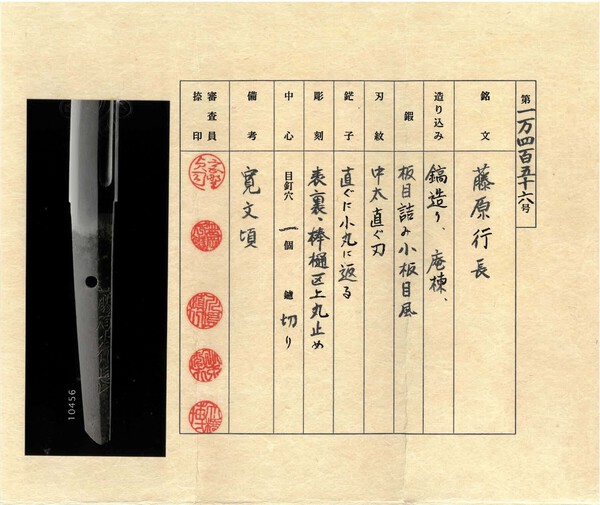 第一万四百五十六号
銘文 藤原行長
造り込み 鎬造り、庵棟、
鍜 板目詰み小板目風
刃紋 中太直ぐ刃
鋩子 直ぐに小丸に返る
彫刻 表裏、棒樋区上丸止め
中心 目釘穴 一個 鑢 切り
備考 寛文頃
審査員捺印
10456